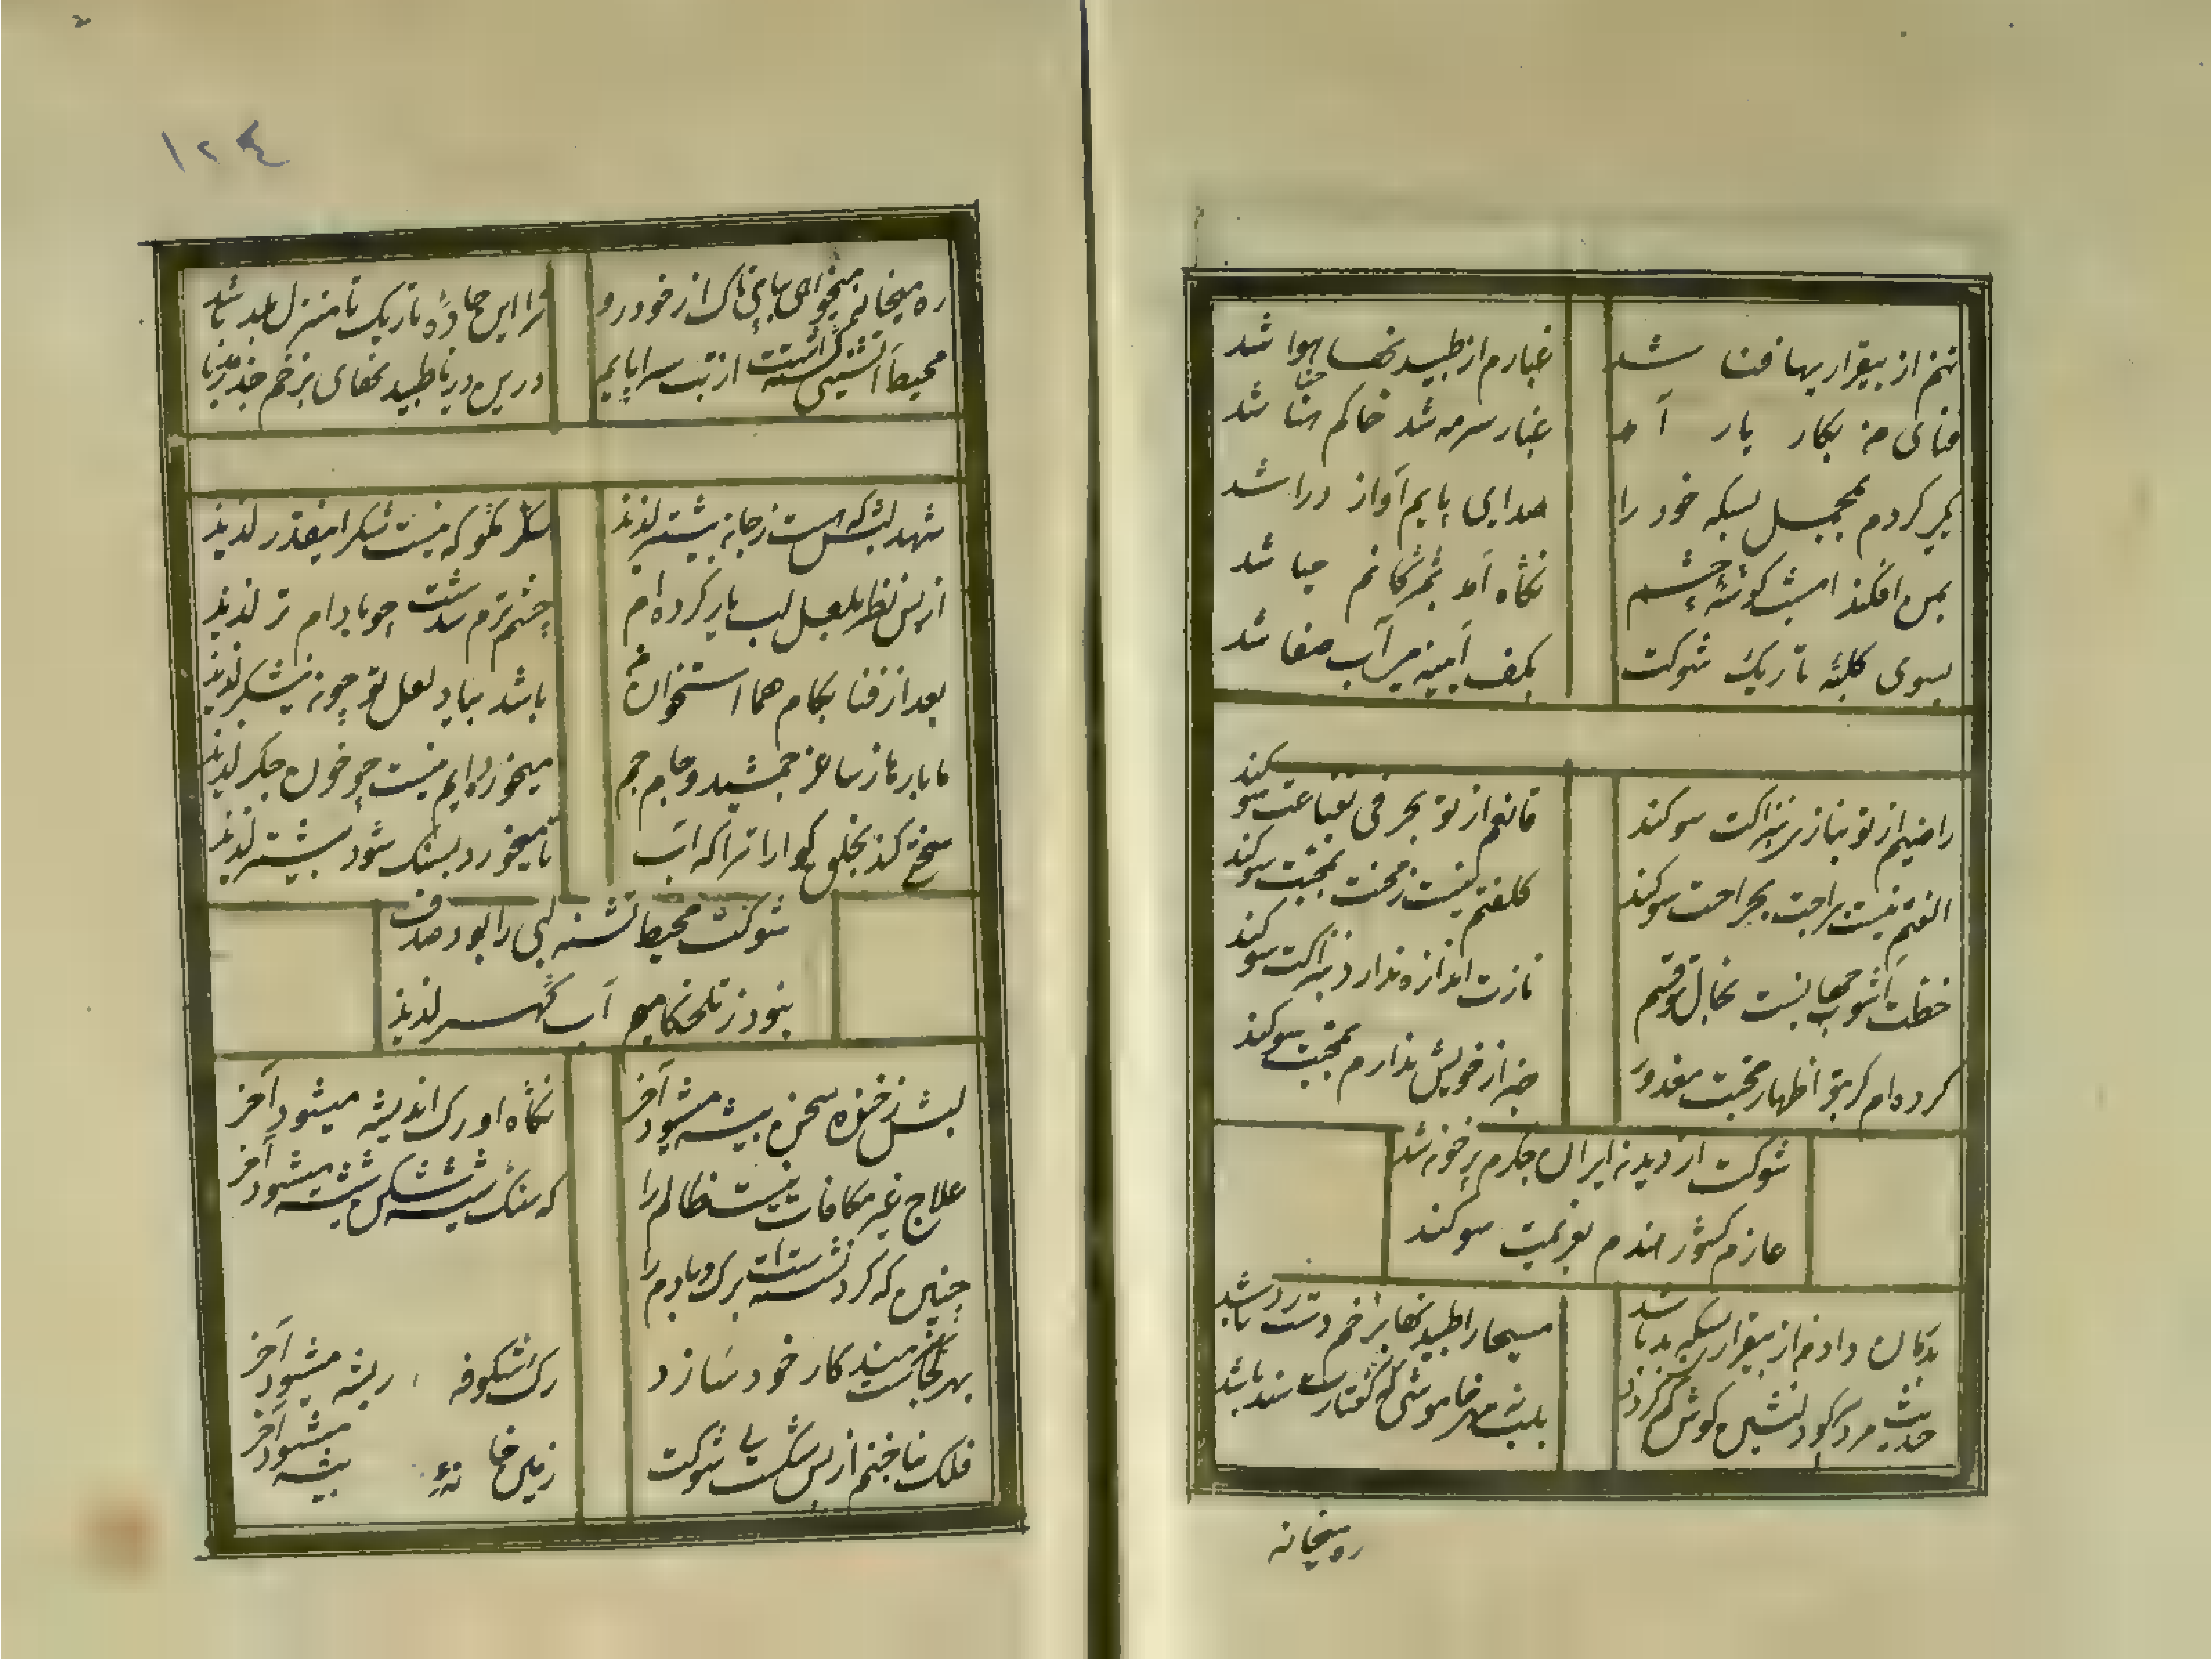 تنم از بیقراریها فنا شد
غبارم از طپیدنها هوا شد
فنای من بکار یار آمد
غبار سرمه شد خاکم حنا شد
کردم بسکه خود را
صدای پایم آواز درا شد
بمن افکند امشب گوشهٔ چشم
نگاه آمد بمژگانم حیا شد
بسوی کلبهٔ تاریک شوکت
بکف آیینه آب صفا شد
راضیم از تو بناز بنزاکت سوکند
قانعم از تو بحرفی بقناعت سوکند
الفتم نیست براحت بجراحت سوکند
کلفتم نیست ز محنت بمحبت سوکند
خطت آشوب جهانست بخال تو قسم
نازت اندازه ندارد بنزاکت سوکند
کرده‌ام کر بتو اظهار محبت معذور
خبر از خویش ندارم بمحبت سوکند
شوکت از دیدن ایران جکرم پرخون شد
عازم کشور هندم بعزیمت سوکند
دادم از بیقرار بسکه بد باشد
مسیحا را طپیدنها بزخم دست رد باشد
حدیث مردم کودنشین کوش کم کردن
بلب مهر خاموشی گفتار سند باشد
ره میخانه
١٢٤
ره میخانه میخواهی بپای تاک از خود رو
ترا این جادهٔ تاریک تا منزل بلد باشد
محیط آتشینی گشته است از تب سراپایم
درین دریا طپیدنهای نبضم جذر و مد باشد
شهد لبش که هست ز جان بیشتر لذیذ
شکر مگو که نیست شکر اینقدر لذیذ
از بس نظر بلعل لب یار کرده‌ام
چشم ترم شدست چو بادام تر لذیذ
بعد از فنا بکام هما استخوان من
باشد بیاد لعل تو چون نیشکر لذیذ
ما بارها ز ساغر جمشید و جام جم
می خورده‌ایم نیست چو خون جکر لذیذ
سختی کند بخلق کوارا ترا که آب
تا میخورد بسنک شود بیشتر لذیذ
شوکت محیط تشنه لبی را بود صدف
نبود ز تلخکامیم آب گهر لذیذ
لبش ز خنده سخن پیشه میشود آخر
نگاه او رک اندیشه میشود آخر
علاج غیر مکافات نیست ظالم را
که سنک شیشه شکن شیشه میشود آخر
چنین که کرد نشسته است برک و بارم را
بهر کجاست هنرمند کار خود سازد
رک شکوفه ریشه میشود آخر
فلک بناخنم از بس شکست نی شوکت
زمین خا بیشه میشود آخر